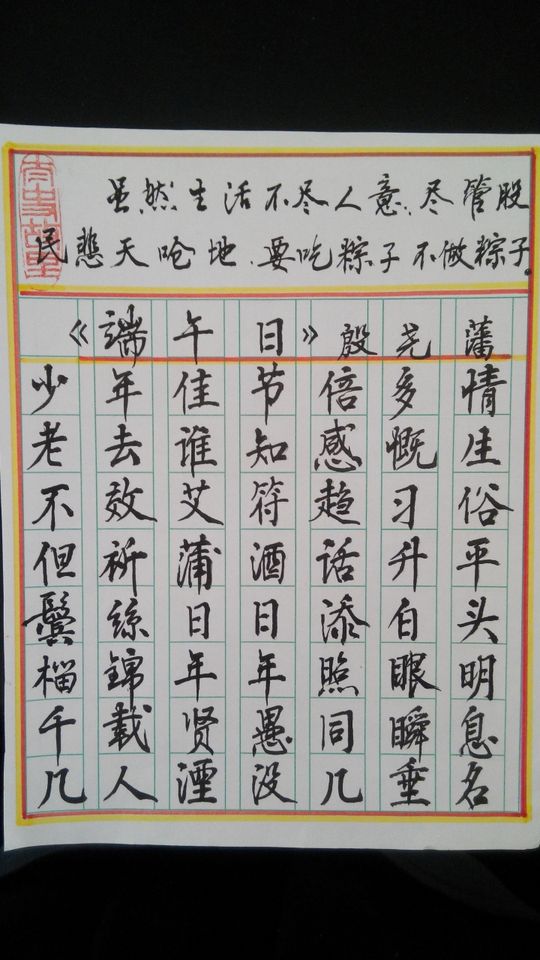 虽然生活不尽人意、尽管股
民悲天呛地、要吃粽子不做粽子。
《端午日》殷尧藩
少年佳节倍多情
老去谁知感慨生
不效艾符趋习俗
但祈蒲酒话升平
鬓丝日日添白头
榴锦年年照眼明
千载贤愚同瞬息
几人湮没几垂名